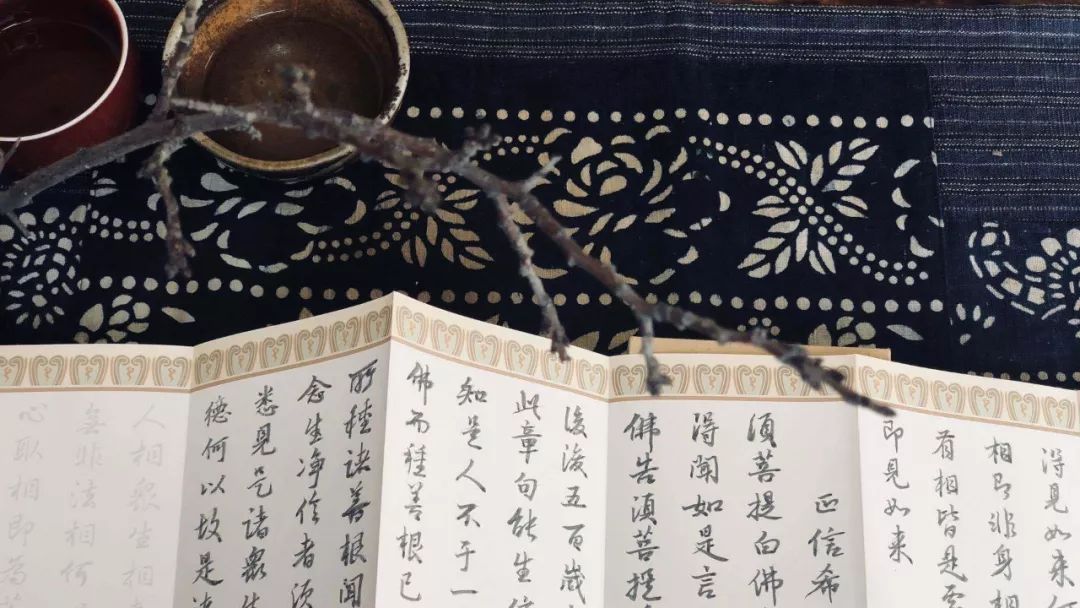 得見如来何
相即非身相
有相皆是
即見如来
正信希
須菩提白佛
得聞如是言
佛告須菩提
後後五百歲
此章句能生信
知是人不于一
佛而種善根已
所種諸善根聞
念生净信者須
悉見是諸衆生
德何以故是
人相衆生相
無非法相何
心取相即為